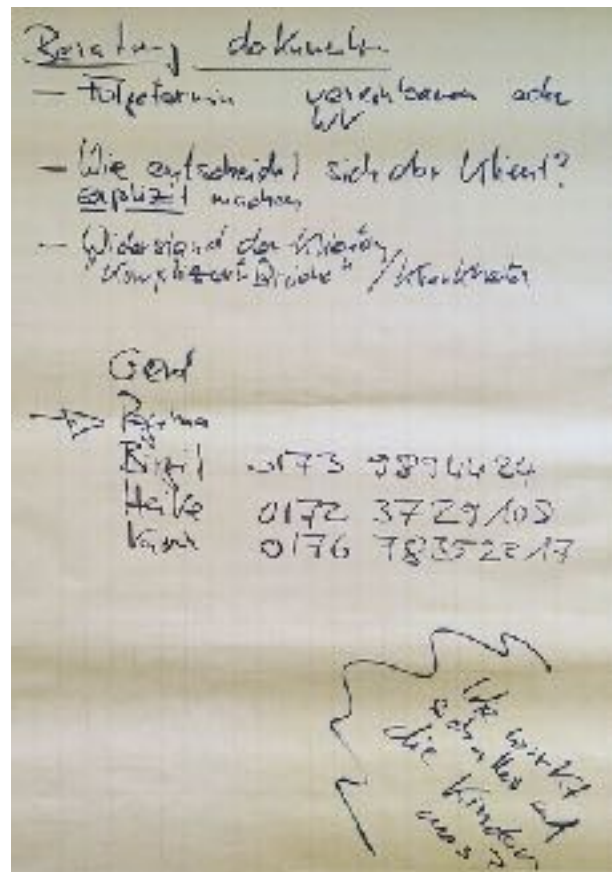 Beratung dokument.
– Folgetermin vereinbaren oder
WV
– Wie entscheidet sich der Klient?
explizit machen
– Widerstand der Klienten
Gerd
→ Regina
Birgit 0173 9894424
Heike 0172 3729103
0176
Wie wirkt
sich alles auf
die Kinder
aus?